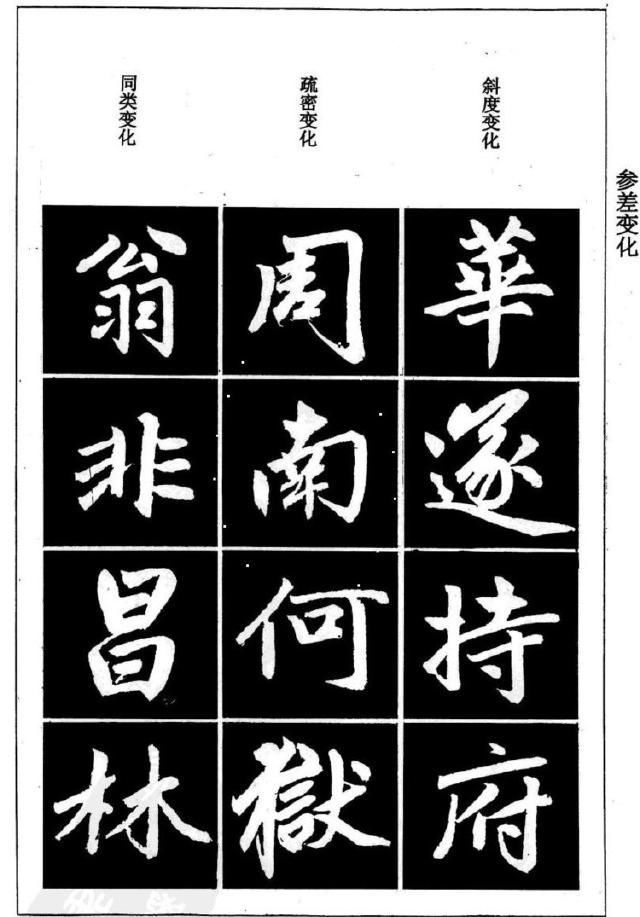 参差变化
斜度变化
華遂持府
疏密变化
周南何獄
同类变化
翁非昌林